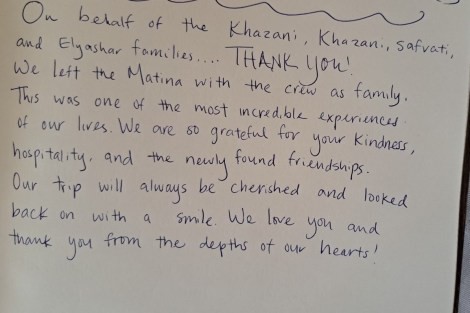 On behalf of the Khazani, Khazani, Safvati,
and Elyashar families.... THANK you!
We left the Matina with the crew as family.
This was one of the most incredible experiences
of our lives. We are so grateful for your Kindness,
hospitality, and the newly found friendships.
Our trip will always be cherished and looked
back on with a smile. We love you and
thank you from the depths of our hearts!